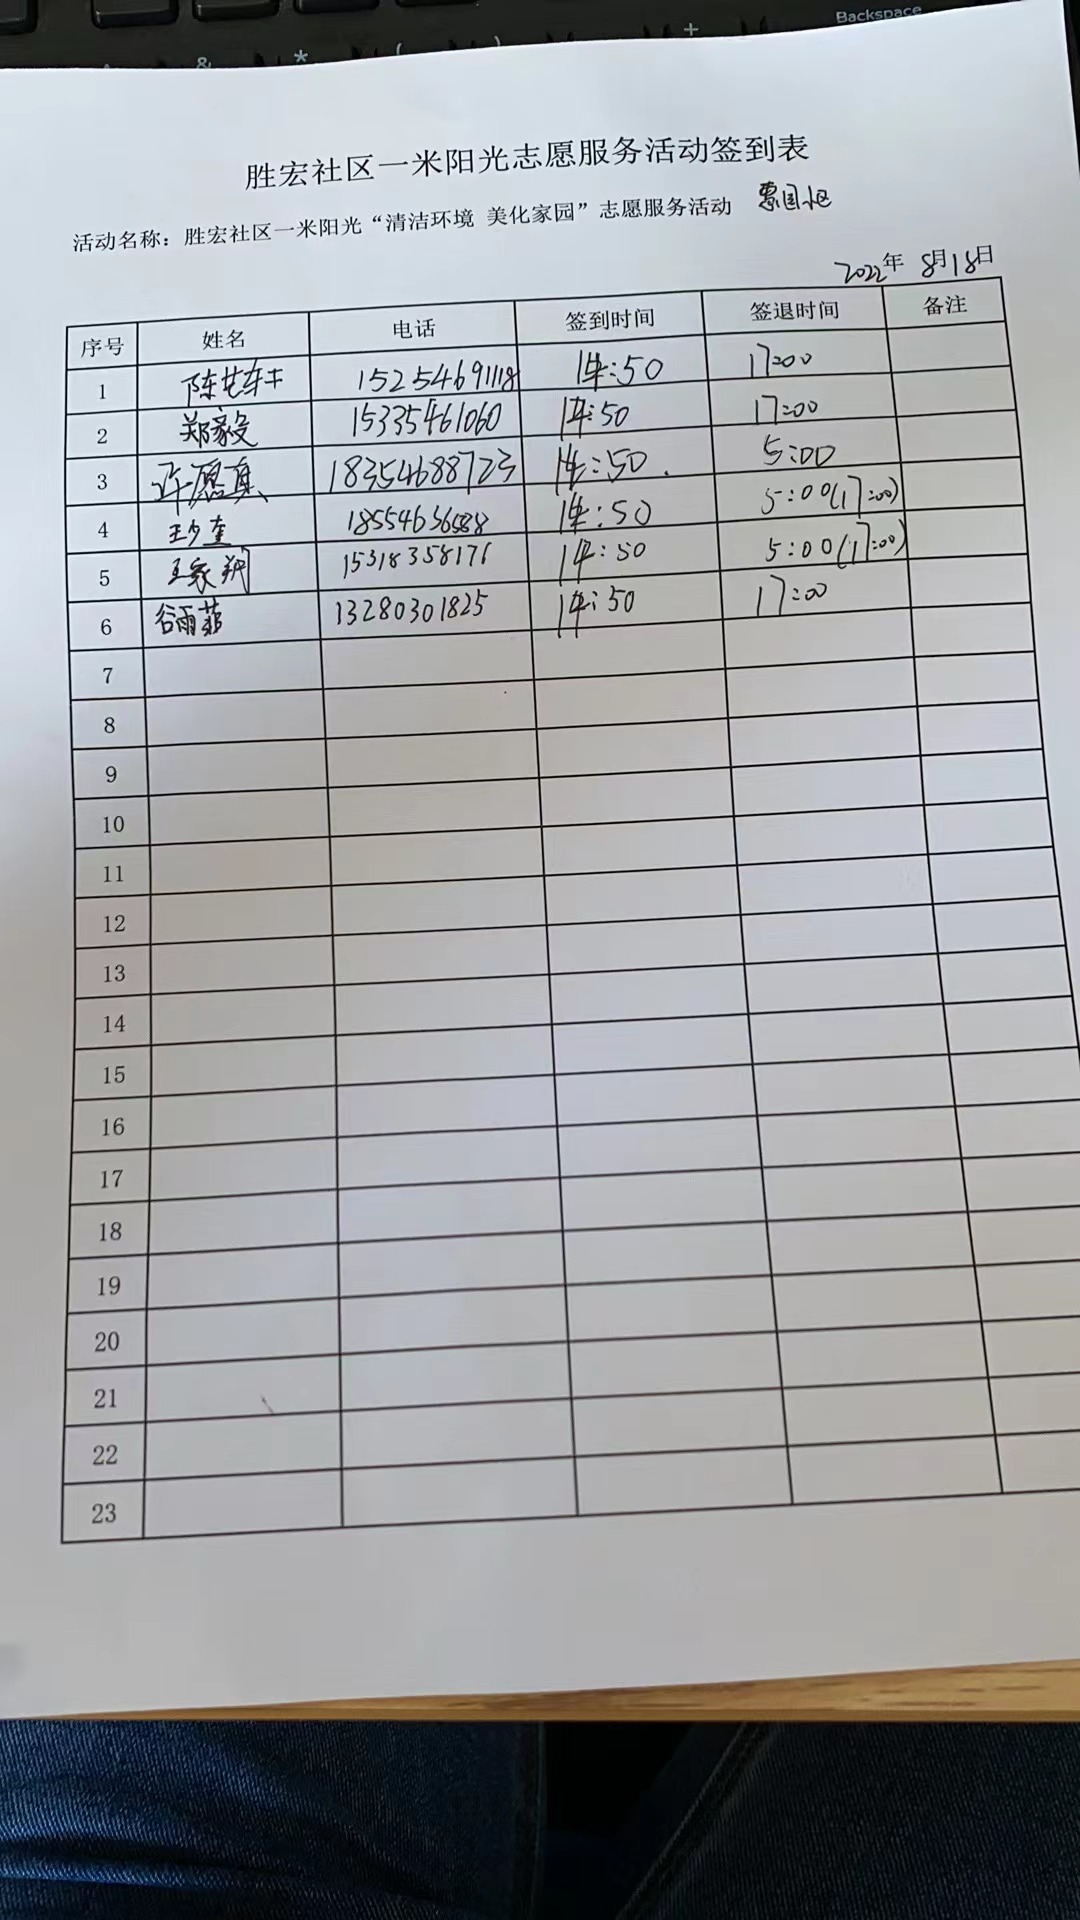 Backspace
& * ( ) +
胜宏社区一米阳光志愿服务活动签到表
活动名称：胜宏社区一米阳光“清洁环境 美化家园”志愿服务活动 惠园小区
2022年 8月18日
序号 姓名 电话 签到时间 签退时间 备注
1 15254691118 14:50 17:00
2 郑家毅 15335461060 14:50 17:00
3 许愿真 18354688723 14:50 5:00
4 王少奎 18554636588 14:50 5:00(17:00)
5 王家翔 15318358176 14:50 5:00(17:00)
6 谷雨菲 13280301825 14:50 17:00
7
8
9
10
11
12
13
14
15
16
17
18
19
20
21
22
23